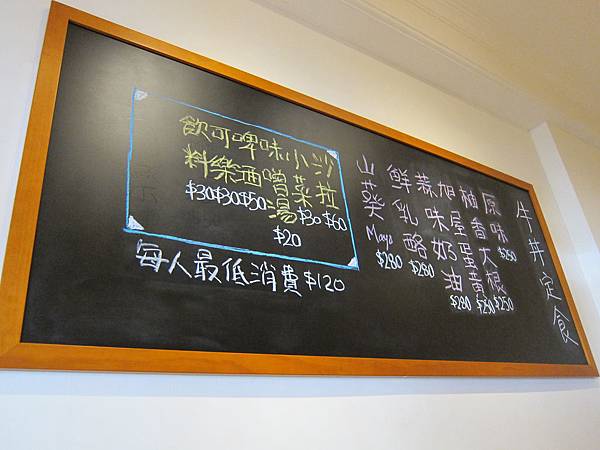 牛丼定食
原味
柚香大根 $250
旭屋蛋黃
蒜味奶油 $280
鮮乳酪 $280
山葵Mayo $280
沙拉 $60
小菜 $30
味噌湯 $20
啤酒 $50
可樂 $30
飲料 $30
每人最低消費 $120